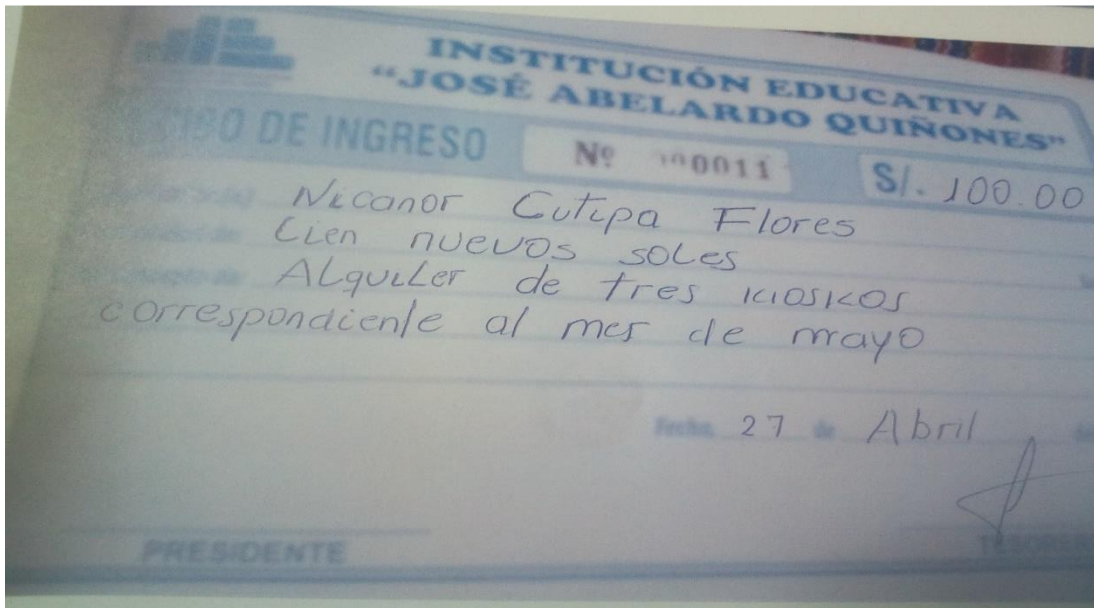 INSTITUCIÓN EDUCATIVA
“JOSÉ ABELARDO QUIÑONES”
DE INGRESO Nº 0011 S/. 100.00
Nicanor Cutipa Flores
Cien nuevos soles
Alquiler de tres kioskos
correspondiente al mes de mayo
Fecha 27 de Abril
PRESIDENTE